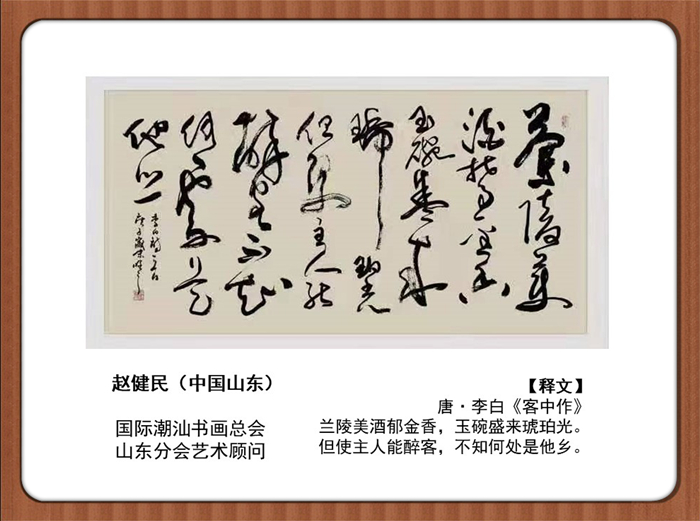 蘭陵美
酒郁金香
玉碗盛来
琥珀光
但使主人能
醉客不知
何处是
他乡
赵健民（中国山东）
国际潮汕书画总会
山东分会艺术顾问
【释文】
唐·李白《客中作》
兰陵美酒郁金香，玉碗盛来琥珀光。
但使主人能醉客，不知何处是他乡。